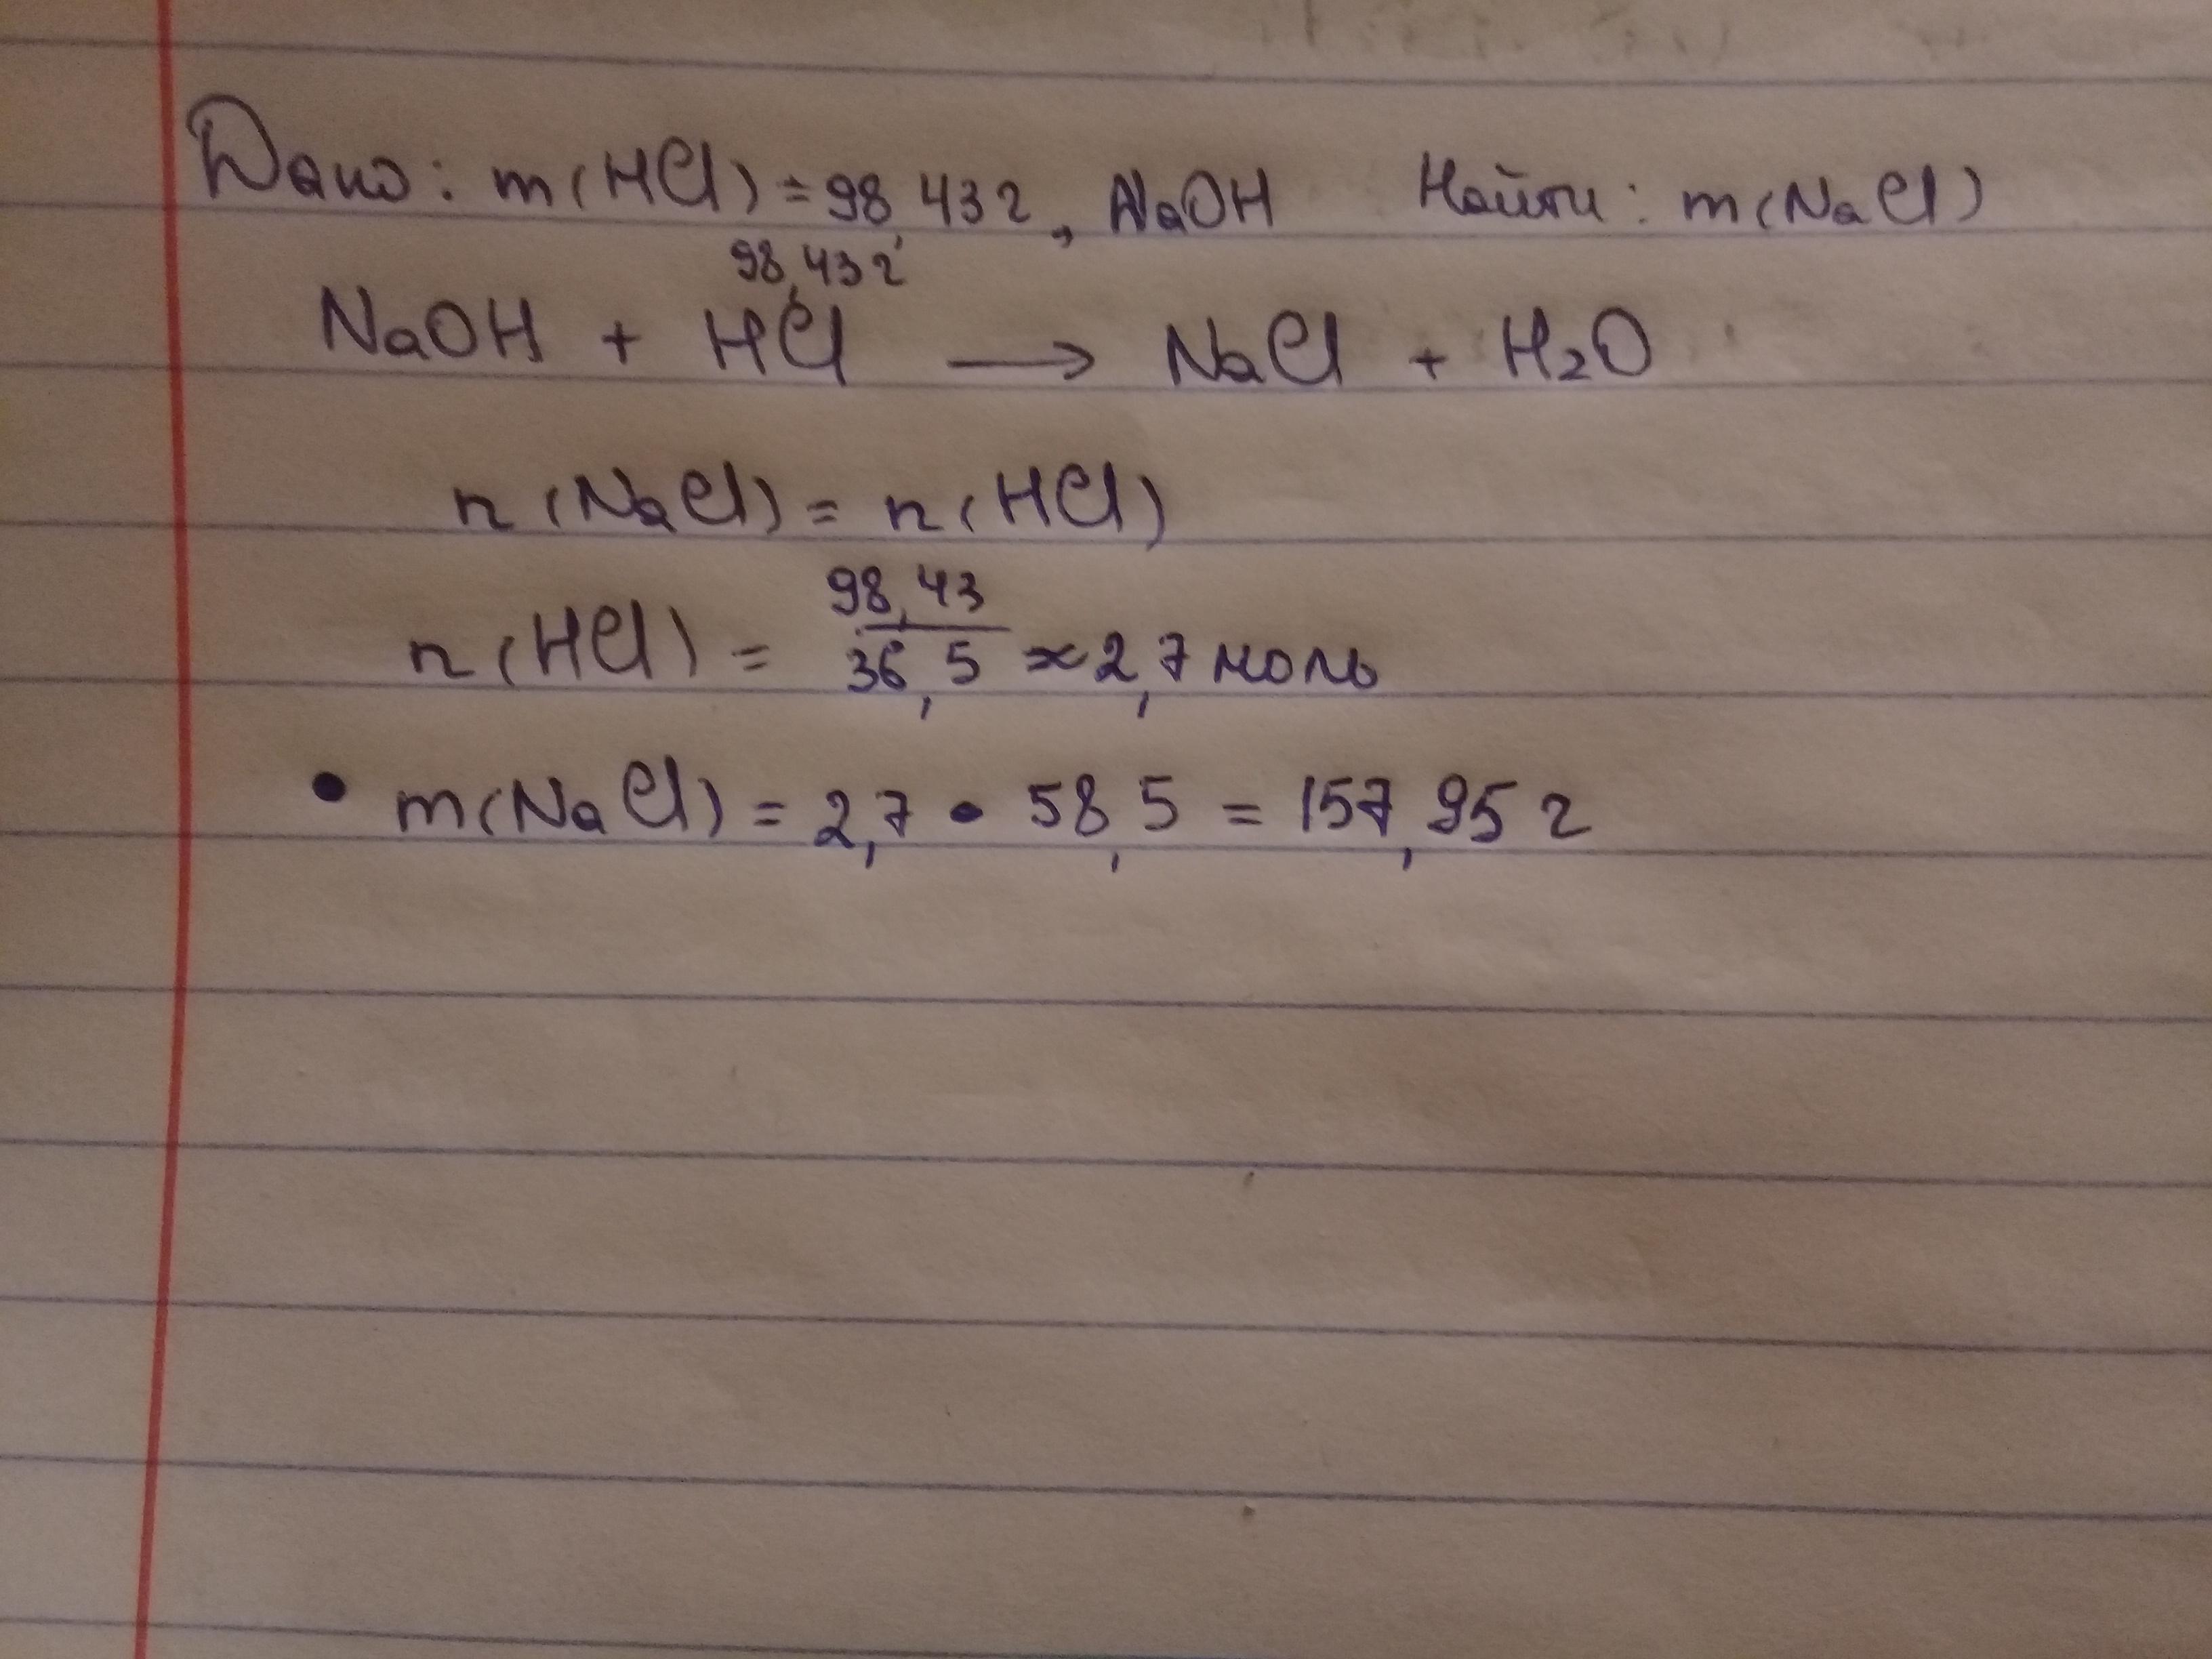 Дано: m(HCl)=98,43г, NaOH Найти: m(NaCl)
98,43г
NaOH + HCl → NaCl + H₂O
n(NaCl) = n(HCl)
n(HCl) = 98,43/36,5 ≈ 2,7 моль
• m(NaCl) = 2,7 • 58,5 = 157,95 г